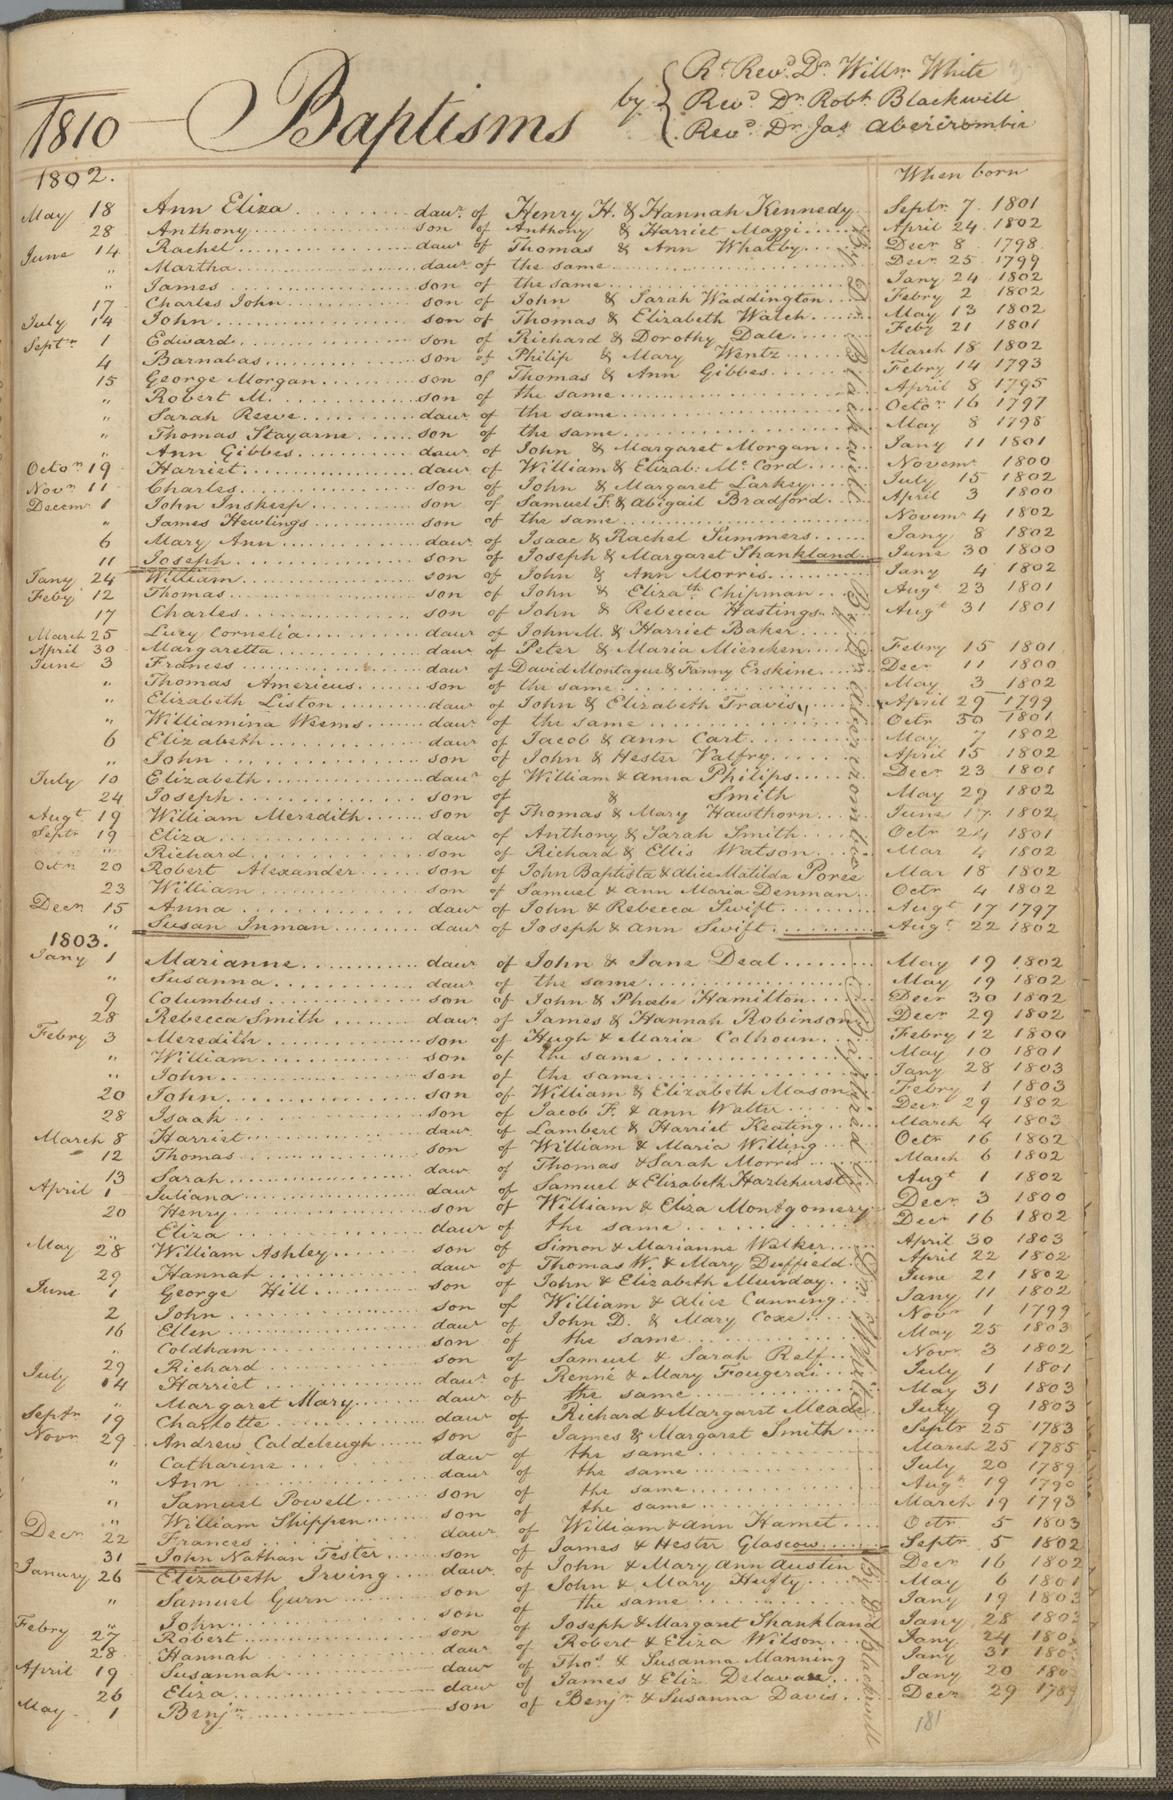 1810 Baptisms by { Rt. Revd. Dr. Willm. White
Revd. Dr. Robt. Blackwell
Revd. Dr. Jas. Abercrombie
1802. When born
May 18 Ann Eliza daur. of Henry H. & Hannah Kennedy Septr. 7 1801
28 Anthony son of Anthony & Harriet Maggi April 24 1802
June 14 Rachel daur of Thomas & Ann Whatby Decr 8 1798
" Martha daur of the same Decr. 25 1799
" James son of the same Jany 24 1802
17 Charles John son of John & Sarah Waddington Febry 2 1802
July 14 John son of Thomas & Elizabeth Walch May 13 1802
Septr. 1 Edward son of Richard & Dorothy Dale Feby 21 1801
4 Barnabas son of Philip & Mary Wentz March 18 1802
15 George Morgan son of Thomas & Ann Gibbes Febry 14 1793
" Robert M. son of the same April 8 1795
" Sarah Reeve daur of the same Octor 16 1797
" Thomas Stayarne son of the same May 8 1798
" Ann Gibbes daur of John & Margaret Morgan Jany 11 1801
Octor 19 Harriet daur of William & Elizab: Mc. Cord Novemr 1800
Novr 11 Charles son of John & Margaret Larkey July 15 1802
Decemr 1 John Inskeep son of Samuel F. & Abigail Bradford April 3 1800
" James Hewlings son of the same Novemr 4 1802
6 Mary Ann daur of Isaac & Rachel Summers Jany 8 1802
11 Joseph son of Joseph & Margaret Shankland June 30 1800
Jany 24 William son of John & Ann Morris Jany 4 1802
Feby 12 Thomas son of John & Elizath. Chipman Augt 23 1801
17 Charles son of John & Rebecca Hastings Augt 31 1801
March 25 Lucy Cornelia daur of John M. & Harriet Baker
April 30 Margaretta daur of Peter & Maria Miercken Febry 15 1801
June 3 Frances daur of David Montague & Fanny Erskine Decr 11 1800
" Thomas Americus son of the same May 3 1802
" Elizabeth Liston daur of John & Elizabeth Travis April 29 1799
" Williamina Weems daur of the same Octr 30 1801
6 Elizabeth daur of Jacob & Ann Cart May 7 1802
" John son of John & Hester Valfry April 15 1802
July 10 Elizabeth daur of William & Anna Philips Decr 23 1801
24 Joseph son of & Smith May 29 1802
Augt 19 William Meredith son of Thomas & Mary Hawthorn June 17 1802
Septr 19 Eliza daur of Anthony & Sarah Smith Octr 24 1801
" Richard son of Richard & Ellis Watson Mar 4 1802
Octr 20 Robert Alexander son of John Baptista & Alice Matilda Poree Mar 18 1802
23 William son of Samuel & Ann Maria Denman Octr 4 1802
Decr 15 Anna daur of John & Rebecca Swift Augt 17 1797
" Susan Inman daur of Joseph & Ann Swift Augt 22 1802
1803.
Jany 1 Marianne daur of John & Jane Deal May 19 1802
" Susanna daur of the same May 19 1802
9 Columbus son of John & Phœbe Hamilton Decr 30 1802
28 Rebecca Smith daur of James & Hannah Robinson Decr 29 1802
Febry 3 Meredith son of Hugh & Maria Calhoun Febry 12 1800
" William son of the same May 10 1801
" John son of the same Jany 28 1803
20 John son of William & Elizabeth Mason Febry 1 1803
28 Isaah son of Jacob F. & Ann Walter Decr 29 1802
March 8 Harriet daur of Lambert & Harriet Keating March 4 1803
12 Thomas son of William & Maria Willing Octr 16 1802
13 Sarah daur of Thomas & Sarah Morris March 6 1802
April 1 Juliana daur of Samuel & Elizabeth Hazlehurst Augt 1 1802
20 Henry son of William & Eliza Montgomery Decr 3 1800
" Eliza daur of the same Decr 16 1802
May 28 William Ashley son of Simon & Marianne Walker April 30 1803
29 Hannah daur of Thomas W. & Mary Duffield April 22 1802
June 1 George Hill son of John & Elizabeth Munday June 21 1802
2 John son of William & Alice Cunning Jany 11 1802
16 Ellen daur of John D. & Mary Coxe Novr 1 1799
" Coldham son of the same May 25 1803
29 Richard son of Samuel & Sarah Relf Novr 3 1802
July 14 Harriet daur of Renne & Mary Fougerai July 1 1801
" Margaret Mary daur of the same May 31 1803
Septr 19 Charlotte daur of Richard & Margaret Meade July 9 1803
Novr 29 Andrew Caldcleugh son of James & Margaret Smith Septr 25 1783
" Catharine daur of the same March 25 1785
" Ann daur of the same July 20 1789
" Samuel Powell son of the same Augt 19 1790
" William Shippen son of the same March 19 1793
Decr 22 Frances daur of William & Ann Hamet Octr 5 1803
31 John Nathan Tester son of James & Hester Glascow Septr 5 1802
Janury 26 Elizabeth Irving daur of John & Mary Ann Austin Decr 16 1802
" Samuel Gurn son of John & Mary Hufty May 6 1801
" John son of the same Jany 19 1803
Febry 27 Robert son of Joseph & Margaret Shankland Jany 28 1803
28 Hannah daur of Robert & Eliza Wilson Jany 24 180
April 19 Susannah daur of Thos & Susanna Manning Jany 31 180
26 Eliza daur of James & Eliz. Delavau Jany 20 180
May 1 Benjn son of Benjn & Susanna Davis Decr 29 1789
By Dr Blackwell
By Dr Abercrombie
Baptized by Dr White
By Dr Blackwell
181